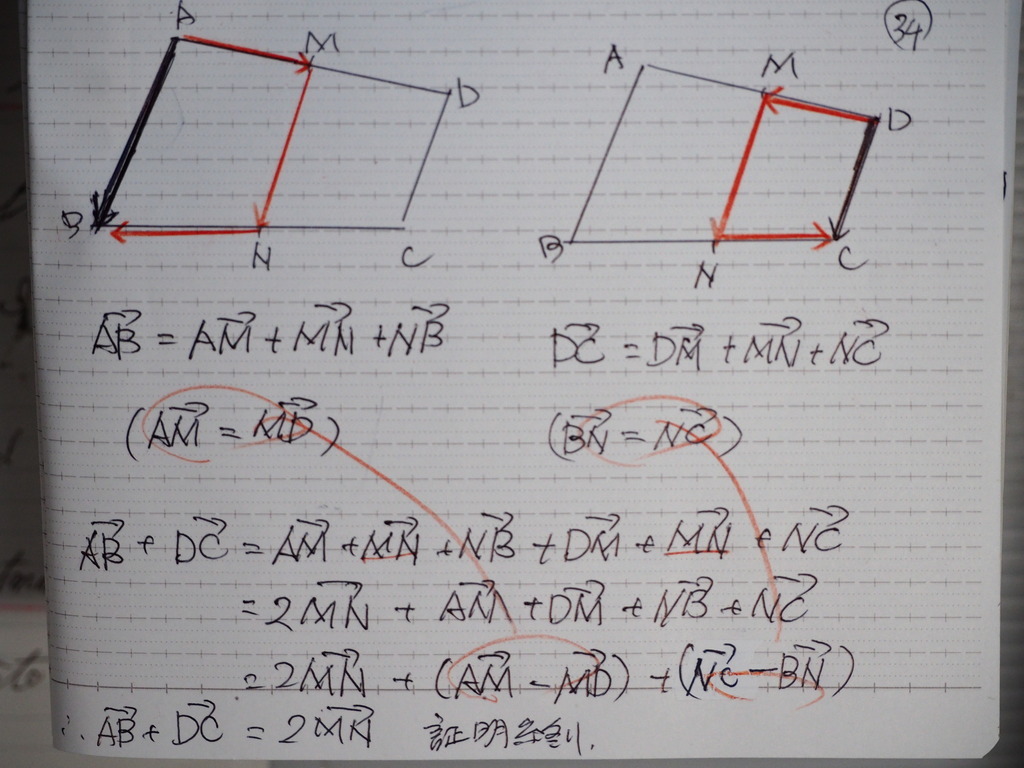 34
A M D B N C
A M D B N C
AB→ = AM→ + MN→ + NB→
DC→ = DM→ + MN→ + NC→
(AM→ = MD→)
(BN→ = NC→)
AB→ + DC→ = AM→ + MN→ + NB→ + DM→ + MN→ + NC→
= 2MN→ + AM→ + DM→ + NB→ + NC→
= 2MN→ + (AM→ - MD→) + (NC→ - BN→)
∴ AB→ + DC→ = 2MN→ 証明終